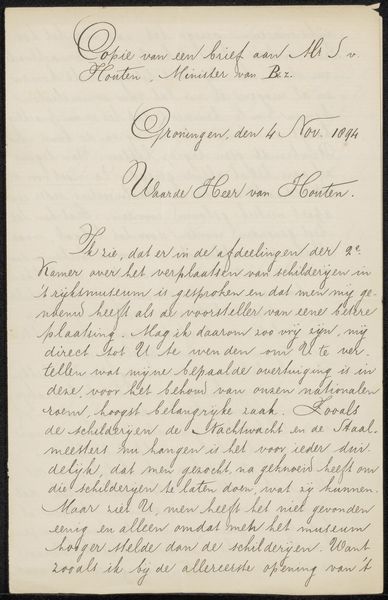 Copie van een brief aan Mr S. v.
Houten, Minister van B.z.
Groningen, den 4 Nov. 1894
Waarde Heer van Houten.
Ik zie, dat er in de afdeelingen der 2e
Kamer over het verplaatsen van schilderijen in
's rijksmuseum is gesproken en dat men mij ge-
noemd heeft als de voorsteller van eene betere
plaatsing. Mag ik daarom zoo vrij zijn, mij
direct tot U te wenden om U te ver-
tellen wat mijne bepaalde overtuiging is in
deze, voor het behoud van onzen nationalen
roem, hoogst belangrijke zaak. Zooals
de schilderijen de Nachtwacht en de Staal-
meesters nu hangen is het voor ieder dui-
delijk, dat men gezocht, ja geknoeid heeft om
die schilderijen te laten doen, wat zij kunnen.
Maar ziet U, men heeft het niet gevonden
eenig en alleen omdat men het museum
hooger stelde dan de schilderijen. Want
zooals ik bij de allereerste opening van 't